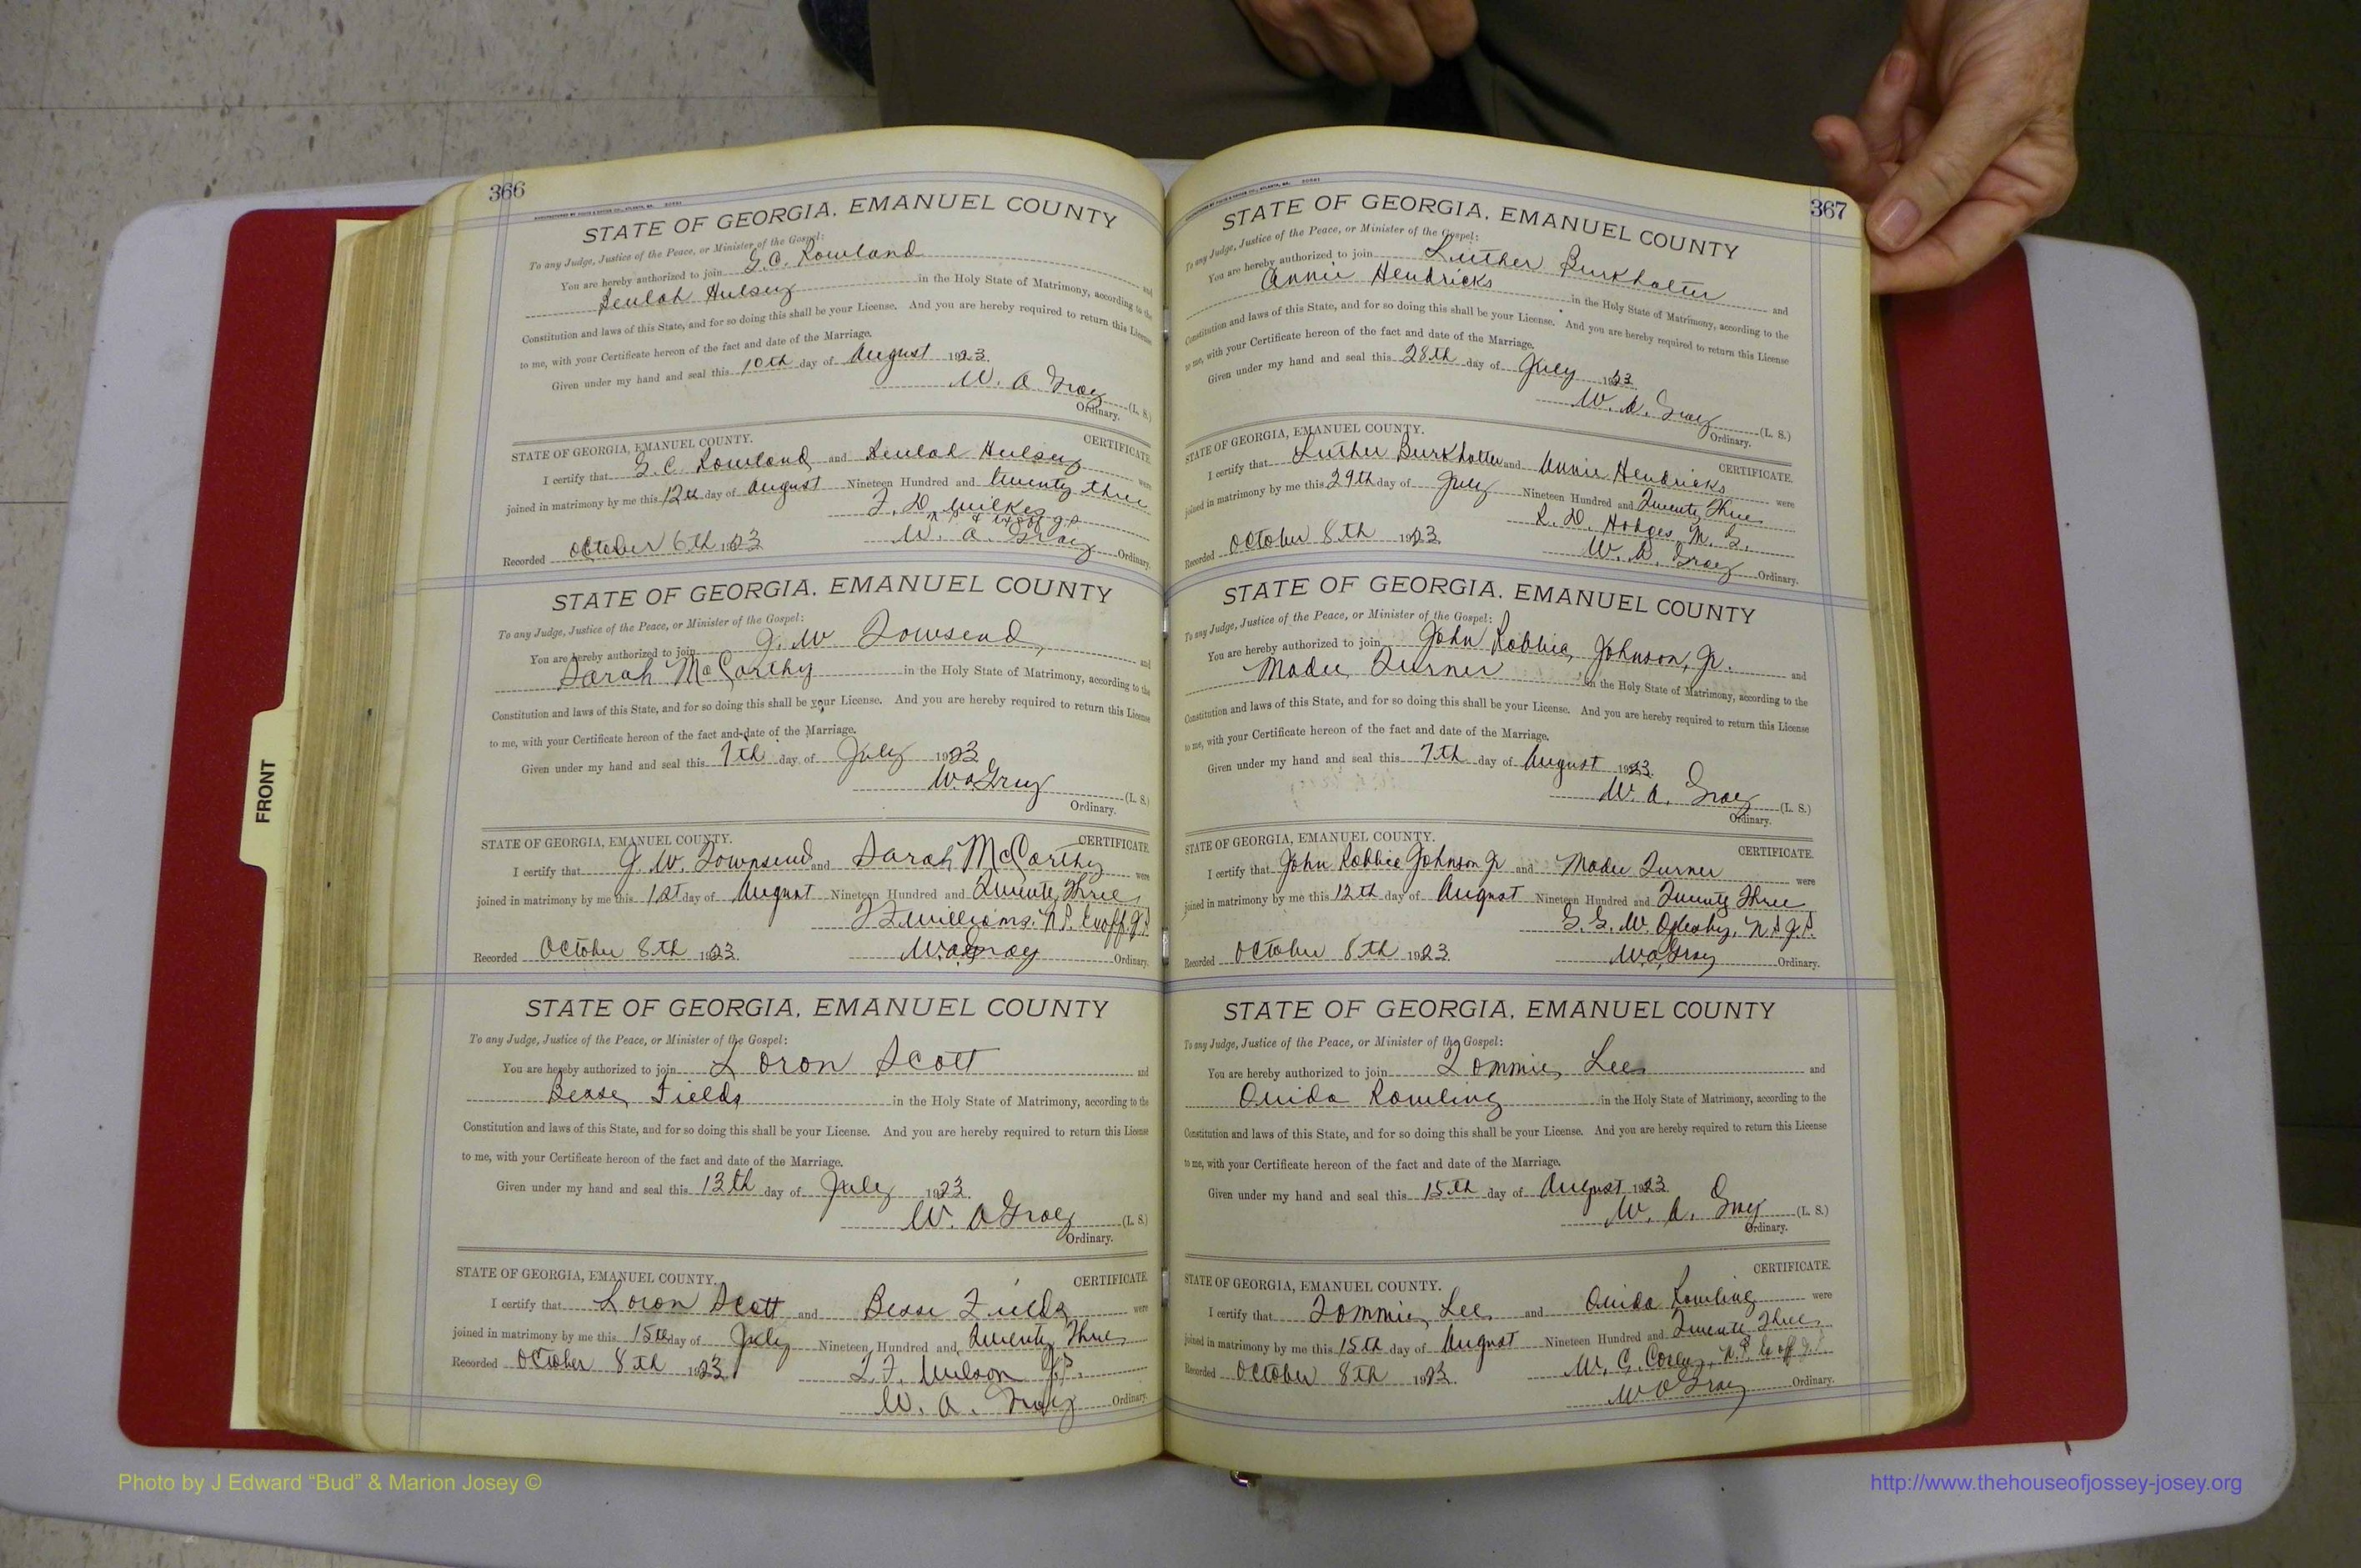 366
STATE OF GEORGIA, EMANUEL COUNTY
To any Judge, Justice of the Peace, or Minister of the Gospel:
You are hereby authorized to join G.C. Rowland and
Beulah Hulsey in the Holy State of Matrimony, according to the
Constitution and laws of this State, and for so doing this shall be your License. And you are hereby required to return this License
to me, with your Certificate hereon of the fact and date of the Marriage.
Given under my hand and seal this 10th day of August 1923.
W. A. Gray (L. S.)
Ordinary.
STATE OF GEORGIA, EMANUEL COUNTY. CERTIFICATE
I certify that G. C. Rowland and Beulah Hulsey were
joined in matrimony by me this 12th day of August Nineteen Hundred and twenty three
J. D. Wilkes
Recorded October 6th 1923 W. A. Gray Ordinary.
STATE OF GEORGIA, EMANUEL COUNTY
To any Judge, Justice of the Peace, or Minister of the Gospel:
You are hereby authorized to join J. W Townsend, and
Sarah McCarthy in the Holy State of Matrimony, according to the
Constitution and laws of this State, and for so doing this shall be your License. And you are hereby required to return this License
to me, with your Certificate hereon of the fact and date of the Marriage.
Given under my hand and seal this 7th day of July 1923
W.A. Gray (L. S.)
Ordinary.
STATE OF GEORGIA, EMANUEL COUNTY. CERTIFICATE
I certify that J. W. Townsend and Sarah McCarthy were
joined in matrimony by me this 1st day of August Nineteen Hundred and Twenty Three
Williams. N.P. Exoff. J.P.
Recorded October 8th 1923. W. A. Gray Ordinary.
STATE OF GEORGIA, EMANUEL COUNTY
To any Judge, Justice of the Peace, or Minister of the Gospel:
You are hereby authorized to join Loron Scott and
Besse Fields in the Holy State of Matrimony, according to the
Constitution and laws of this State, and for so doing this shall be your License. And you are hereby required to return this License
to me, with your Certificate hereon of the fact and date of the Marriage.
Given under my hand and seal this 13th day of July 1923.
W. A Gray (L. S.)
Ordinary.
STATE OF GEORGIA, EMANUEL COUNTY. CERTIFICATE
I certify that Loron Scott and Besse Fields were
joined in matrimony by me this 15th day of July Nineteen Hundred and Twenty Three
Recorded October 8th 1923. Wilson J.P.
W. A. Gray Ordinary.
367
STATE OF GEORGIA, EMANUEL COUNTY
To any Judge, Justice of the Peace, or Minister of the Gospel:
You are hereby authorized to join Luther Burkhalter and
Annie Hendricks in the Holy State of Matrimony, according to the
Constitution and laws of this State, and for so doing this shall be your License. And you are hereby required to return this License
to me, with your Certificate hereon of the fact and date of the Marriage.
Given under my hand and seal this 28th day of July 1923
W. A. Gray (L. S.)
Ordinary.
STATE OF GEORGIA, EMANUEL COUNTY. CERTIFICATE.
I certify that Luther Burkhalter and Annie Hendricks were
joined in matrimony by me this 29th day of July Nineteen Hundred and Twenty Three
R. D. Hodges, M. G.
Recorded October 8th 1923. W. A. Gray Ordinary.
STATE OF GEORGIA, EMANUEL COUNTY
To any Judge, Justice of the Peace, or Minister of the Gospel:
You are hereby authorized to join John Robbie Johnson, Jr. and
Madee Turner in the Holy State of Matrimony, according to the
Constitution and laws of this State, and for so doing this shall be your License. And you are hereby required to return this License
to me, with your Certificate hereon of the fact and date of the Marriage.
Given under my hand and seal this 7th day of August 1923.
W. A. Gray (L. S.)
Ordinary.
STATE OF GEORGIA, EMANUEL COUNTY. CERTIFICATE.
I certify that John Robbie Johnson Jr and Madee Turner were
joined in matrimony by me this 12th day of August Nineteen Hundred and Twenty Three
G. G. W. Oglesby, N.P. J.P.
Recorded October 8th 1923 W.A. Gray Ordinary.
STATE OF GEORGIA, EMANUEL COUNTY
To any Judge, Justice of the Peace, or Minister of the Gospel:
You are hereby authorized to join Tommie Lee and
Ouida Rowling in the Holy State of Matrimony, according to the
Constitution and laws of this State, and for so doing this shall be your License. And you are hereby required to return this License
to me, with your Certificate hereon of the fact and date of the Marriage.
Given under my hand and seal this 15th day of August 1923
W. A. Gray (L. S.)
Ordinary.
STATE OF GEORGIA, EMANUEL COUNTY. CERTIFICATE.
I certify that Tommie Lee and Ouida Rowling were
joined in matrimony by me this 15th day of August Nineteen Hundred and Twenty Three
Recorded October 8th 1923. W. C. N.P. Ex off J.P.
W A Gray Ordinary.
FRONT
Photo by J Edward “Bud” & Marion Josey ©
http://www.thehouseofjossey-josey.org